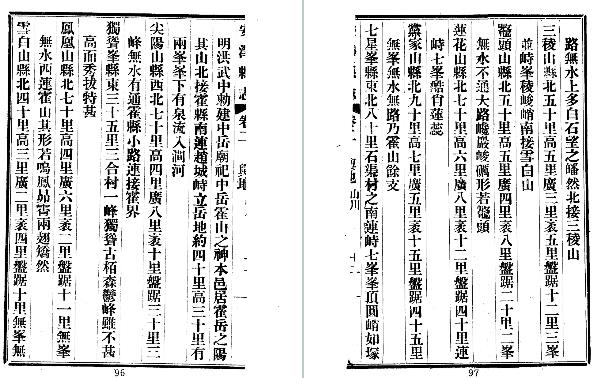 路無水上多白石望之皤然北接三稜山
三稜山縣北五十里高三里廣三里袤五里盤踞十二里三峯
並峙峯稜峻峭南接雪白山
鼇頭山縣北五十里高五里廣四里袤八里盤踞二十里二峯
無水不通大路巉嚴峻形若鼇頭
蓮花山縣北七十里高六里廣八里袤十二里盤踞四十里蓮
峙七峯酷肖蓮蕊
黨家山縣北九十里高七里廣五里袤十五里盤踞四十五里
無峯無水無路乃霍山餘支
七星峯縣東北八十里石渠村之南蓮峙七峯峯頂圓峭如塚
山川
97
縣志
明洪武中勅建中岳廟祀中岳霍山之神本邑居霍岳之陽
其山北接霍縣南蓮趙城峙立岳地約四十里高三十里有
兩峯峯下有泉流入澗河
尖陽山縣西北七十里高四里廣八里袤十里盤踞三十里三
峰無水有通霍縣小路連接霍界
獨聳峯縣東三十五里三合村一峰獨聳古栢森鬱峰雖不甚
高而秀拔特甚
鳳凰山縣北七十里高四里廣六里袤二里盤踞十一里無峯
無水西蓮霍山其形若鳴鳳昴霄兩翅矯然
雪白山縣北四十里高三里廣二里袤四里盤踞十里無峯無
96